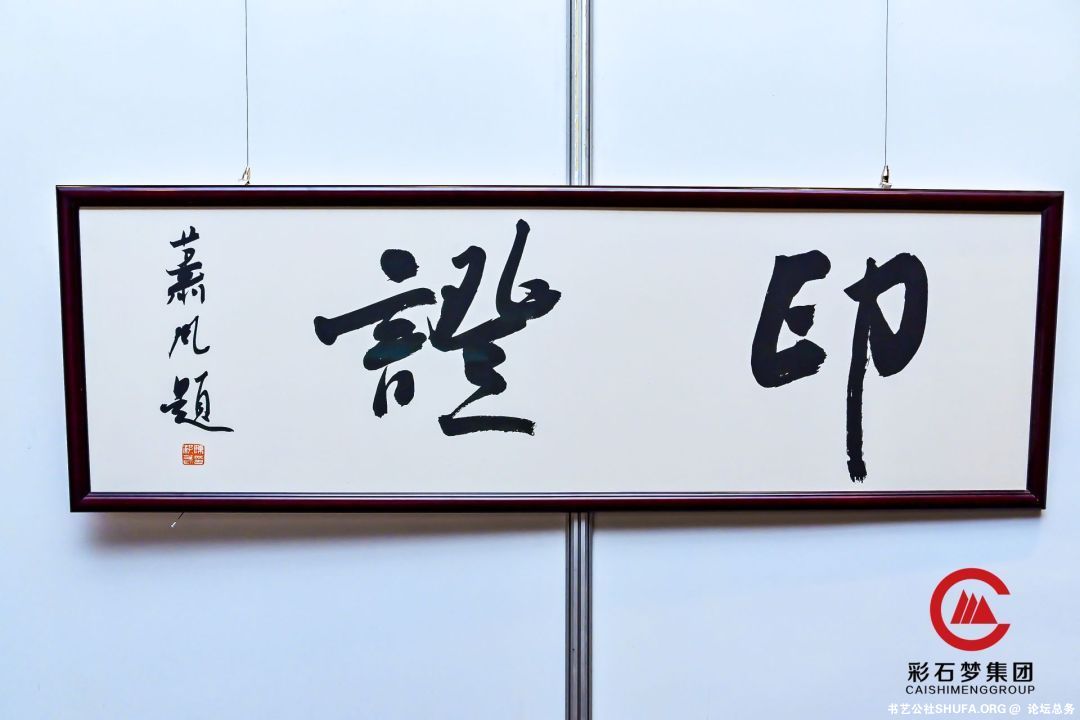 印證
蕭風題
彩石梦集团
CAISHIMENGGROUP
书艺公社SHUFA.ORG @ 论坛总务